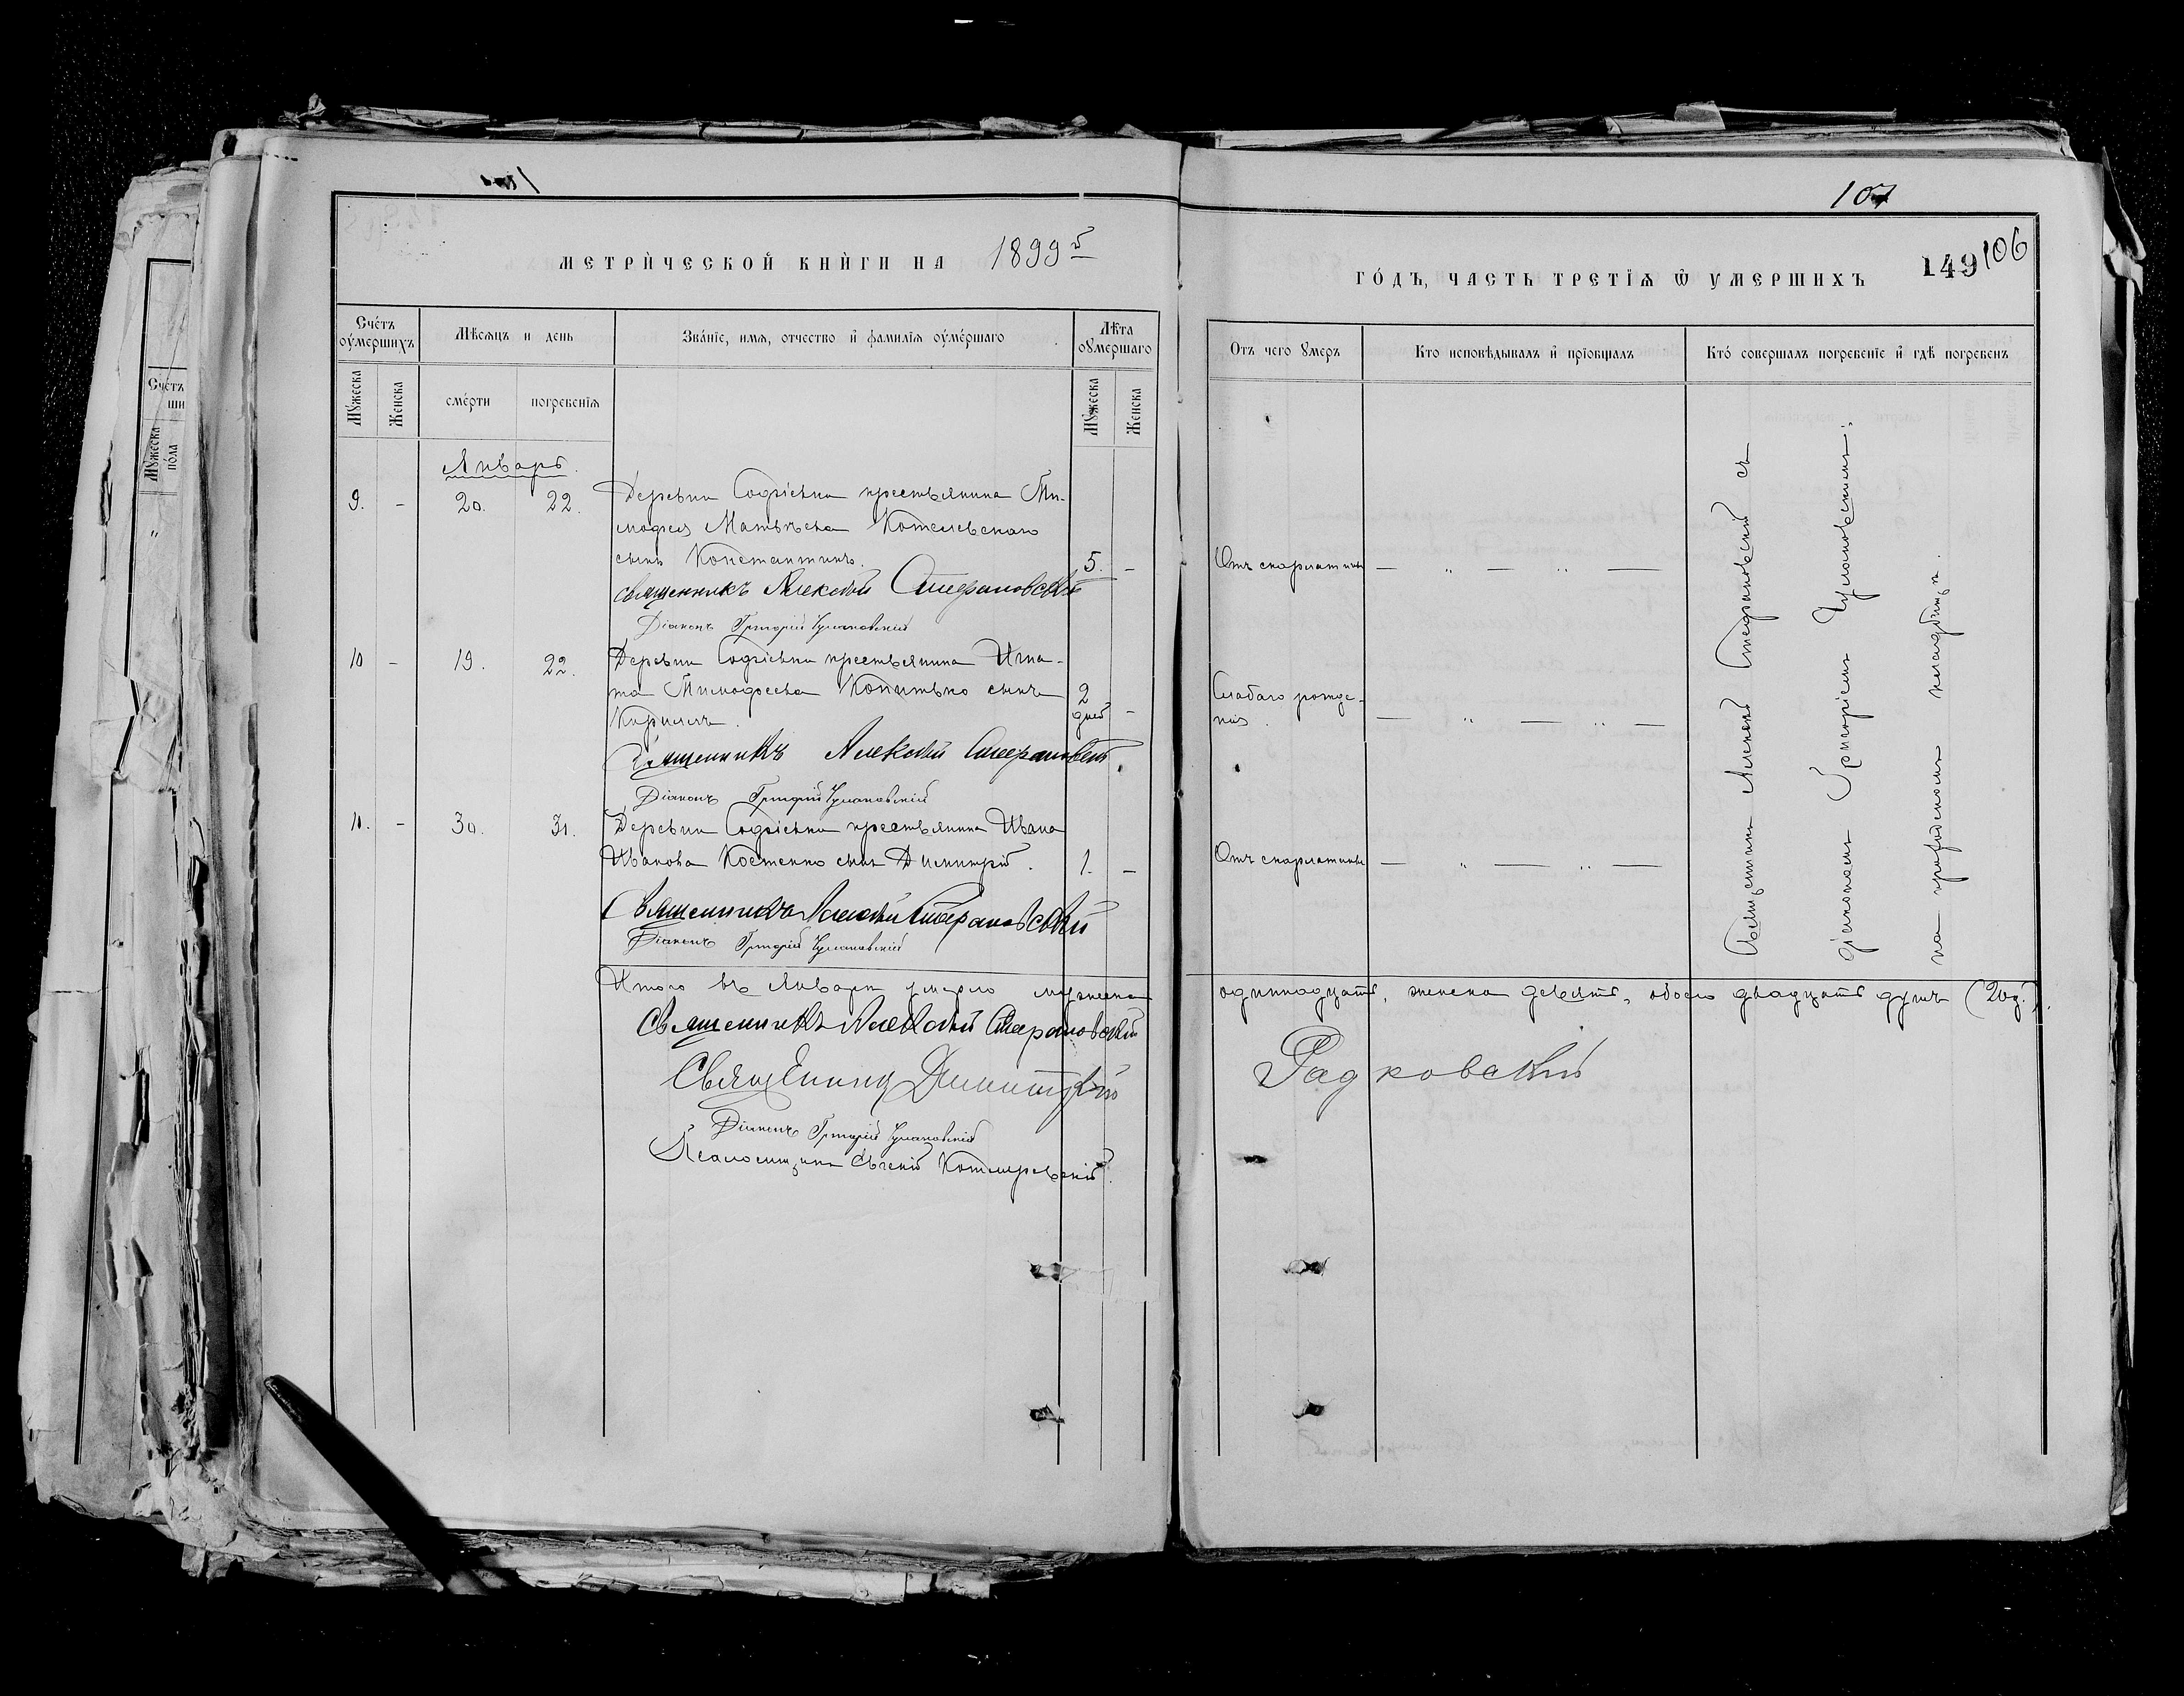 107
МЕТРИЧЕСКОЙ КНИГИ НА 1899й
ГОДЪ, ЧАСТЬ ТРЕТІЯ Ѿ УМЕРШИХЪ
149 106
Счетъ оумершихъ
Мѣсяцъ и день
Званіе, имя, отчество и фамилія оумершаго
Лѣта оумершаго
Отъ чего умеръ
Кто исповѣдывалъ и пріобщалъ
Кто совершалъ погребеніе и гдѣ погребенъ
Мужеска
Женска
смерти
погребенія
Мужеска
Женска
Январь.
9. - 20. 22. Деревни Софіевки крестьянина Ти-
мофея Матвѣева Котелевскаго
сынъ Константинъ. 5. - Отъ скарлатины — „ — „ —
священникъ Алексѣй Стефановскій
Діаконъ Григорій Чулановскій
10 - 19. 22. Деревни Софіевки крестьянина Игна-
та Тимофеева Копитько сынъ 2 Слабаго рожде-
Кириллъ. дней - нія. — „ — „ —
Священникъ Алексѣй Стефановскій
Діаконъ Григорій Чулановскій
11. - 30. 31. Деревни Софіевки крестьянина Ивана
Иванова Костенко сынъ Димитрій. 1. - Отъ скарлатины — „ — „ —
Священникъ Алексѣй Стефановскій
Діаконъ Григорій Чулановскій
Священникъ Алексѣй Стефановскій съ
діакономъ Григоріемъ Чулановскимъ;
на приходскомъ кладбищѣ.
Итого въ Январѣ умерло мужеска одиннадцать, женска девять, обоего двадцать душъ (20 д.).
Священникъ Алексѣй Стефановскій
Священникъ Димитрій Радковскій
Діаконъ Григорій Чулановскій
Псаломщикъ Евгеній
Счетъ
ши
Мужеска
пола
„